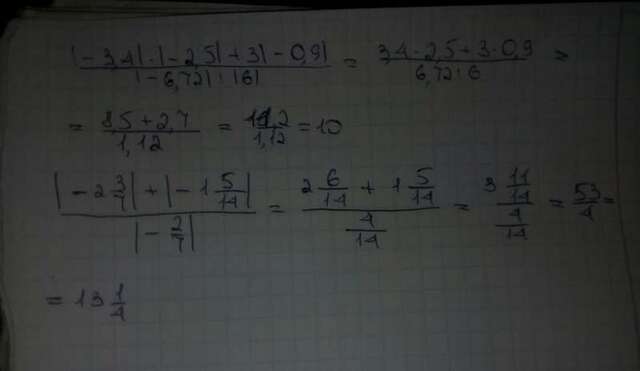 (|-3,4| · |-2,5| + 3|-0,9|) / (|-6,72| : |6|) = (3,4 · 2,5 + 3 · 0,9) / (6,72 : 6) =
= (8,5 + 2,7) / 1,12 = 11,2 / 1,12 = 10
(|-2 3/7| + |-1 5/14|) / |-2/7| = (2 6/14 + 1 5/14) / (4/14) = (3 11/14) / (4/14) = 53/4 =
= 13 1/4